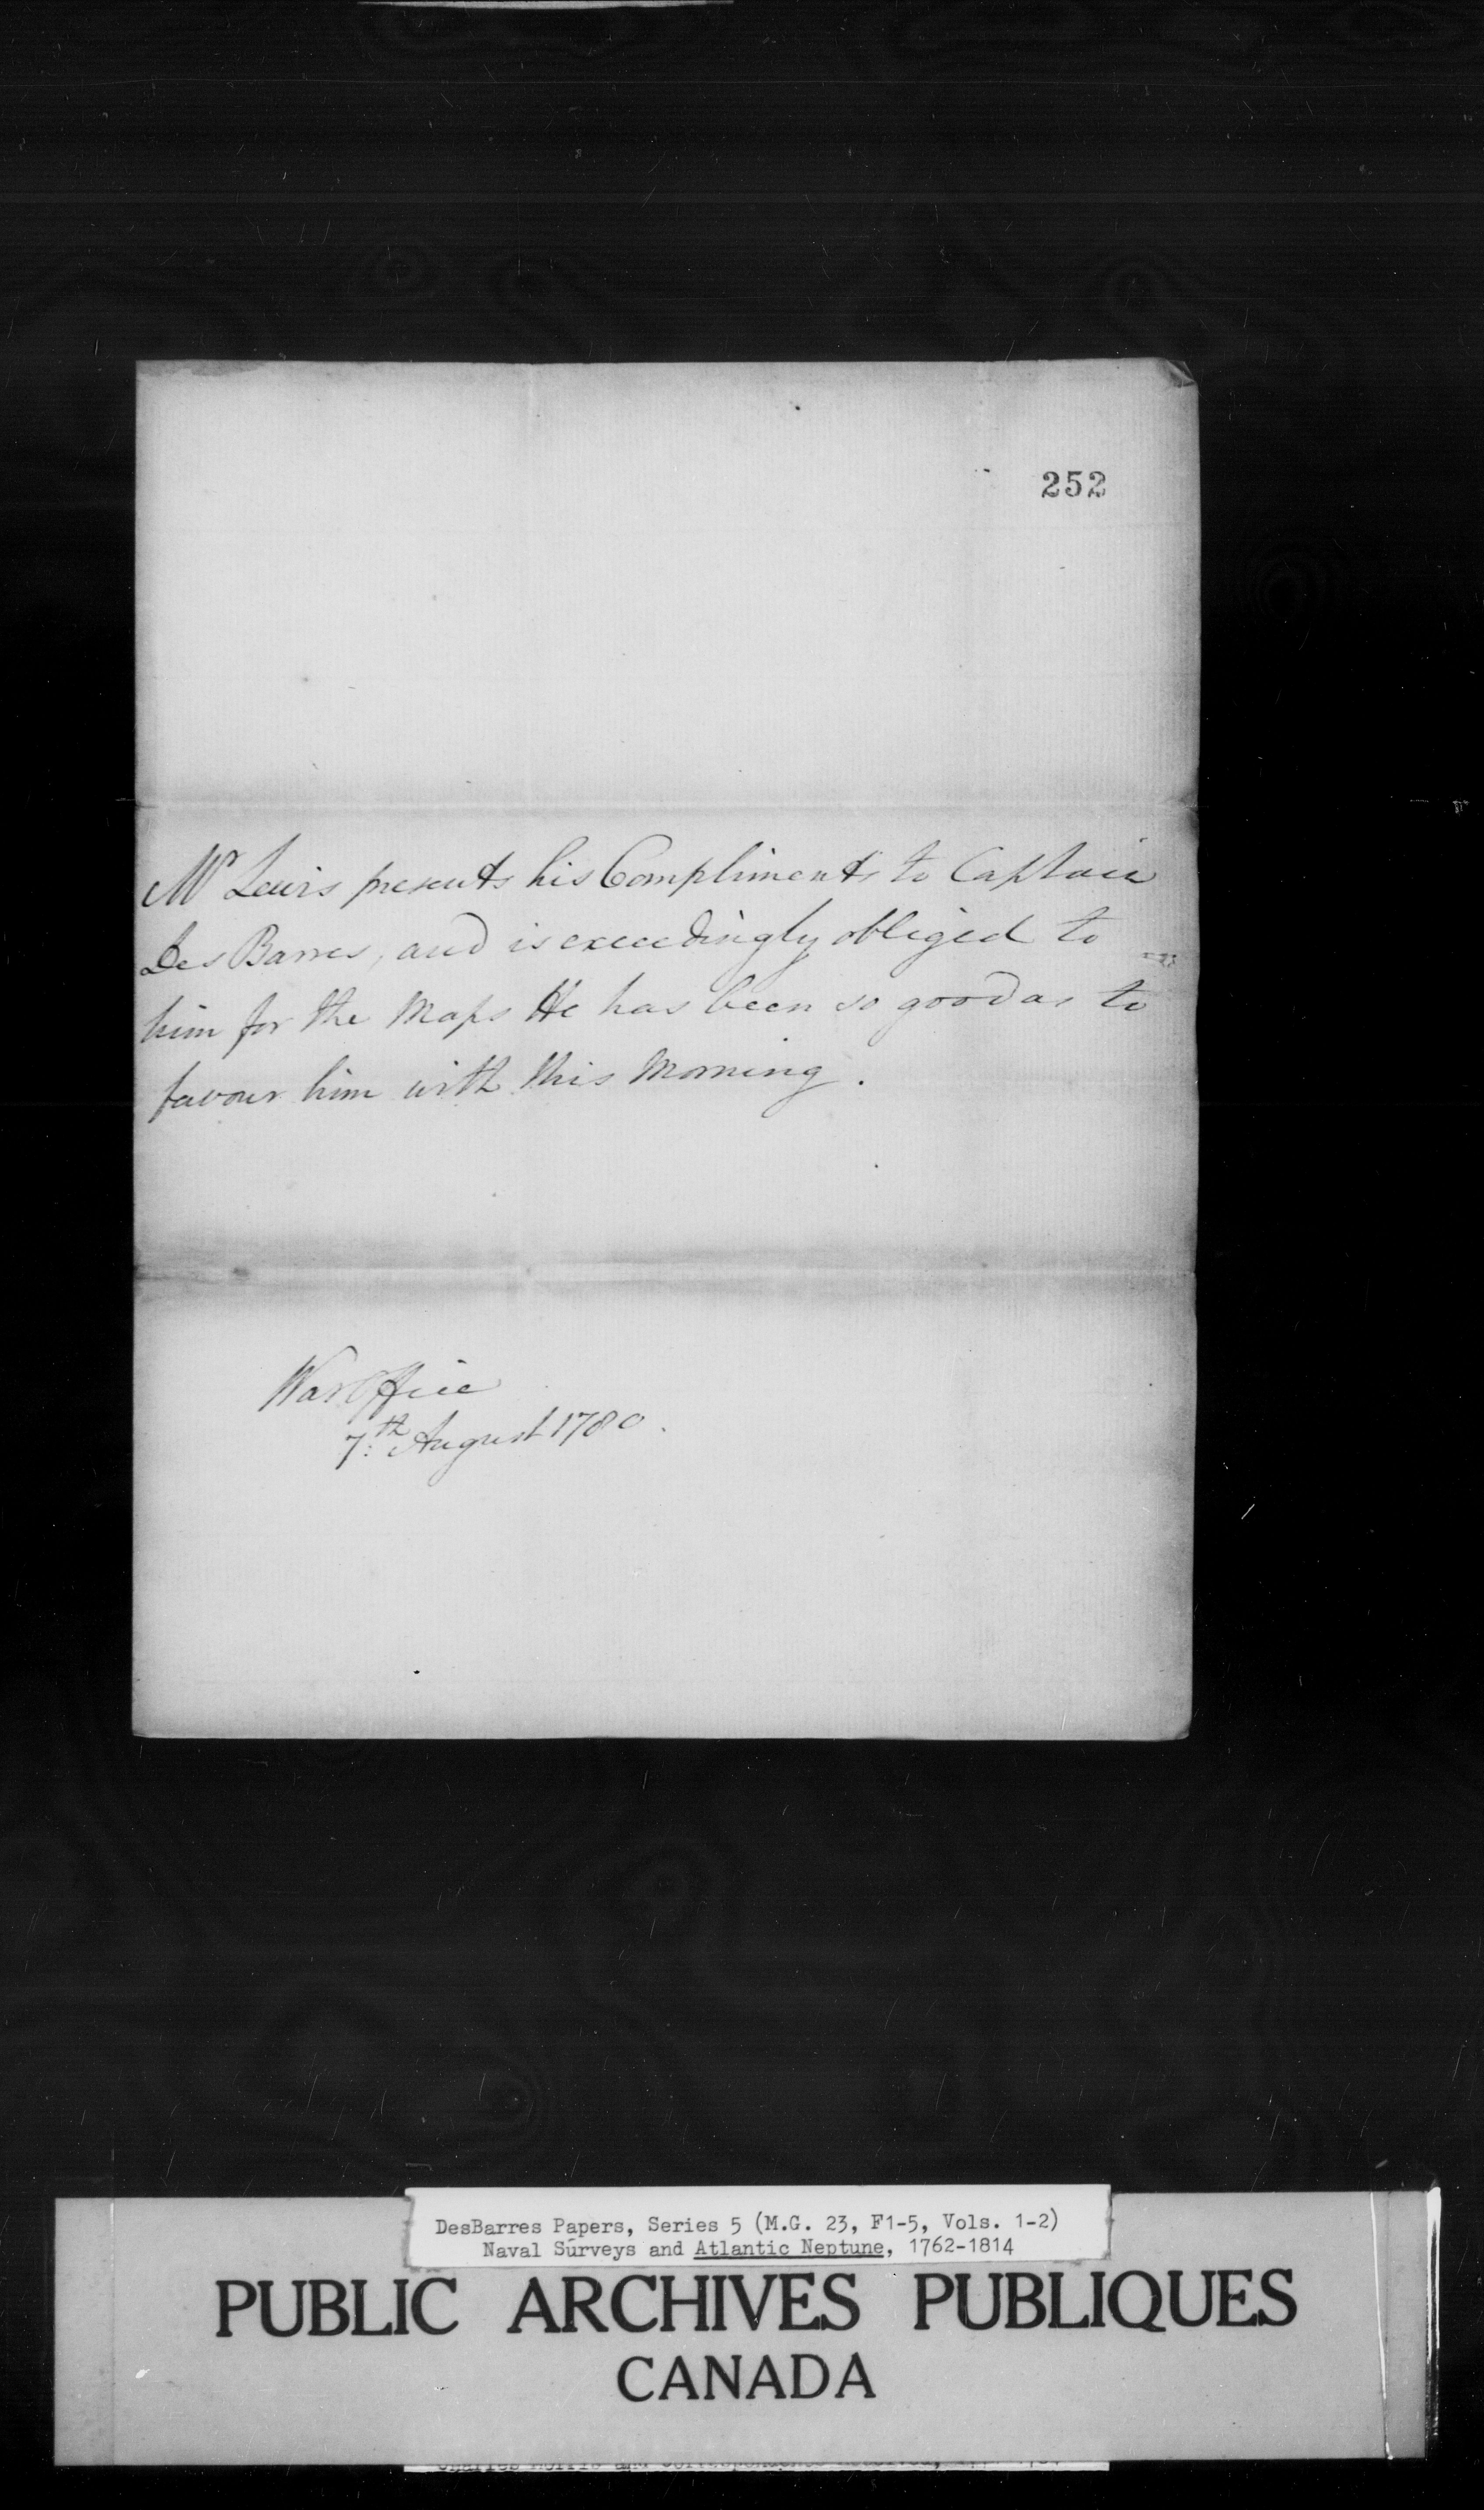 252
Mr Lewis presents his Compliments to Captain
Des Barres, and is exceedingly obliged to
him for the Maps He has been so good as to
favour him with this Morning.
War Office
7:th August 1780.
DesBarres Papers, Series 5 (M.G. 23, F1-5, Vols. 1-2)
Naval Surveys and Atlantic Neptune, 1762-1814
PUBLIC ARCHIVES PUBLIQUES
CANADA